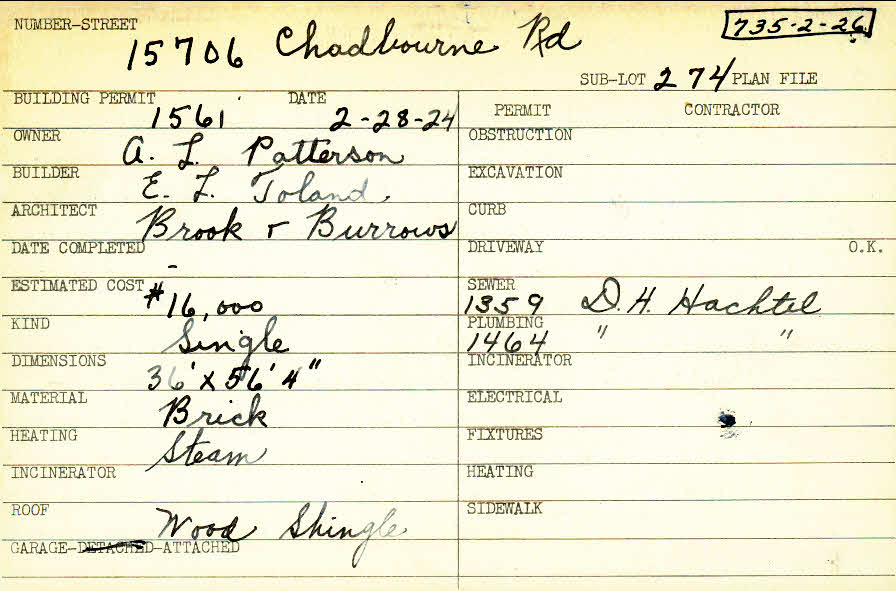 NUMBER-STREET 15706 Chadbourne Rd 735-2-26
SUB-LOT 274 PLAN FILE
BUILDING PERMIT 1561 DATE 2-28-24
PERMIT CONTRACTOR
OWNER A. L. Patterson
OBSTRUCTION
BUILDER E. L. Toland
EXCAVATION
ARCHITECT Brook & Burrows
CURB
DATE COMPLETED -
DRIVEWAY O.K.
ESTIMATED COST $16,000
SEWER 1359 D. H. Hachtel
KIND Single
PLUMBING 1464 " "
DIMENSIONS 36' x 56' 4"
INCINERATOR
MATERIAL Brick
ELECTRICAL
HEATING Steam
FIXTURES
INCINERATOR
HEATING
ROOF Wood Shingle
SIDEWALK
GARAGE-DETACHED-ATTACHED